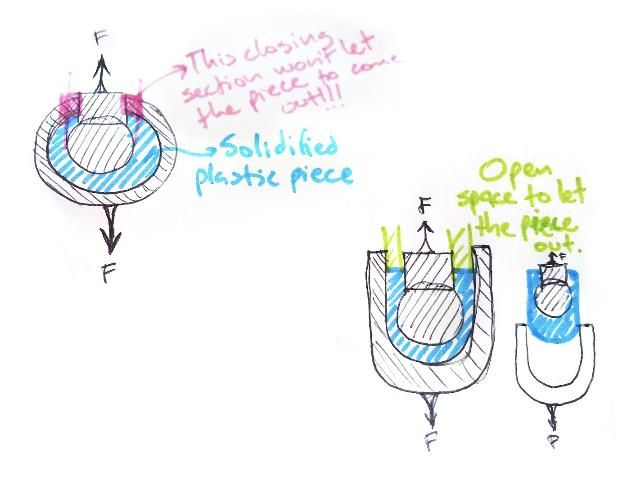 F
This closing
section won't let
the piece to come
out!!!
Solidified
plastic piece
F
Open
space to let
the piece
out.
F
F
F
F